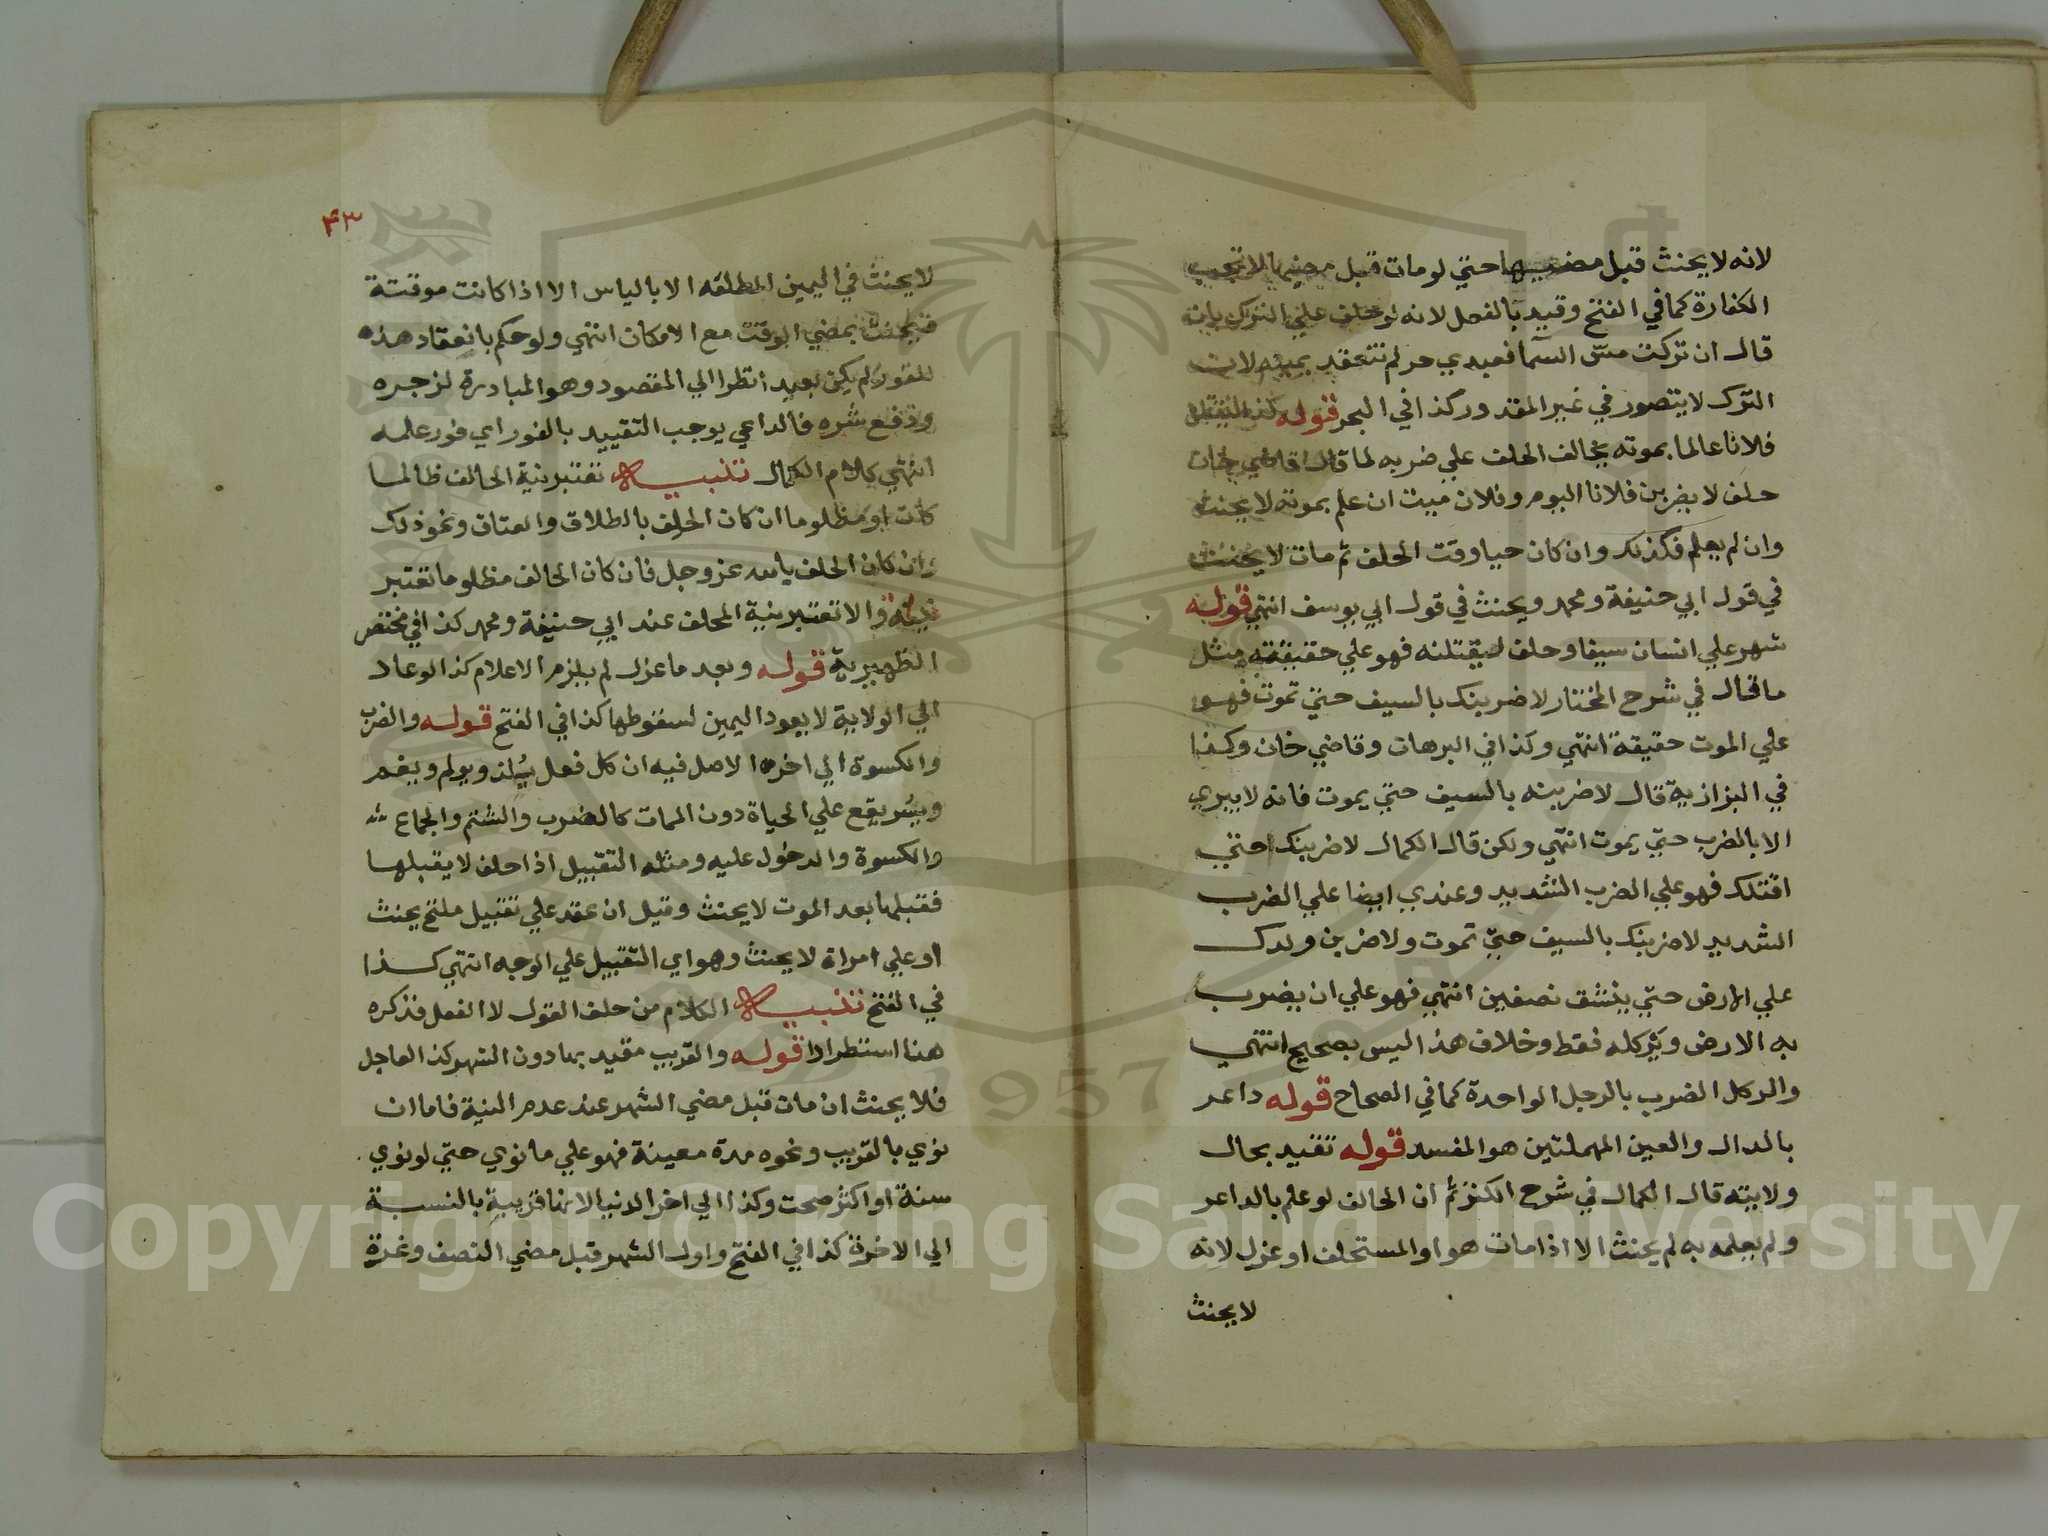 لانه لا يحنث قبل مضيها حتي لومات قبل مضيها لا تجب
الكفارة كما في الفتح وقيد بالفعل لانه لو حلف علي الترك بان
قال ان تركت مس السما فعبدي حر لم تنعقد يمينه لان
الترك لا يتصور في غير المقدور كذا في البحر قوله كذا ليقتلن
فلانا عالما بموته يخالف الحلف علي ضربه لما قال قاضي خان
حلف لا يضربن فلانا اليوم وفلان ميت ان علم بموته لا يحنث
وان لم يعلم فكذلك وان كان حيا وقت الحلف ثم مات لا يحنث
في قول ابي حنيفة ومحمد ويحنث في قول ابي يوسف انتهي قوله
شهر علي انسان سيفا وحلف ليقتلنه فهو علي حقيقته مثل
ما قال في شرح المختار لاضربنك بالسيف حتي تموت فهو
علي الموت حقيقة انتهي وكذا في البرهان وقاضي خان وكذا
في البزازية قال لاضربنه بالسيف حتي يموت فانه لا يبري
الا بالضرب حتي يموت انتهي ولكن قال الكمال لاضربنك حتي
اقتلك فهو علي الضرب الشديد وعندي ايضا علي الضرب
الشديد لاضربنك بالسيف حتي تموت ولاضربن ولدك
علي الارض حتي ينشق نصفين انتهي فهو علي ان يضرب
به الارض ويركله فقط وخلاف هذا ليس بصحيح انتهي
والركل الضرب بالرجل الواحدة كما في الصحاح قوله داعر
بالدال والعين المهملتين هو المفسد قوله تقيد بحال
ولايته قال الكمال في شرح الكنز ثم ان الحالف لو علم بالداعر
ولم يعلمه به لم يحنث الا اذا مات هو او المستحلف او عزل لانه
لا يحنث
٤٣
لا يحنث في اليمين المطلقه الا بالياس الا اذا كانت موقتة
فيحنث بمضي الوقت مع الامكان انتهي ولو حكم بانعقاد هذه
للفور لم يكن بعيد انظرا الي المقصود وهو المبادرة لزجره
ودفع شره فالداعي يوجب التقييد بالفور اي فور علمه
انتهي كلام الكمال تنبيه تعتبر نية الحالف ظالما
كان او مظلوما ان كان الحلف بالطلاق والعتاق ونحو ذلك
وان كان الحلف بالله عز وجل فان كان الحالف مظلوما تعتبر
نيته والا تعتبر نية المحلف عند ابي حنيفة ومحمد كذا في مختصر
الظهيرية قوله وبعد ما عزل لم يلزم الاعلام كذا لو عاد
الي الولاية لا يعود اليمين لسقوطها كذا في الفتح قوله والضرب
والكسوة الي اخره الاصل فيه ان كل فعل يلذ ويولم ويغم
ويسر يقع علي الحياة دون الممات كالضرب والشتم والجماع
والكسوة والدخول عليه ومثله التقبيل اذا حلف لا يقبلها
فقبلها بعد الموت لا يحنث وقيل ان عقد علي تقبيل ملتح يحنث
او علي امراة لا يحنث وهو اي التقبيل علي الوجه انتهي كذا
في الفتح تنبيه الكلام من حلف القول لا الفعل فذكره
هنا استطرادا قوله والقريب مقيد بما دون الشهر كذا العاجل
فلا يحنث ان مات قبل مضي الشهر عند عدم النية فاما ان
نوي بالقريب ونحوه مدة معينة فهو علي ما نوي حتي لو نوي
سنة او اكثر صحت وكذا الي اخر الدنيا لانها قريبة بالنسبة
الي الاخرة كذا في الفتح واول الشهر قبل مضي النصف وغرة
1957
Copyright © King Saud University